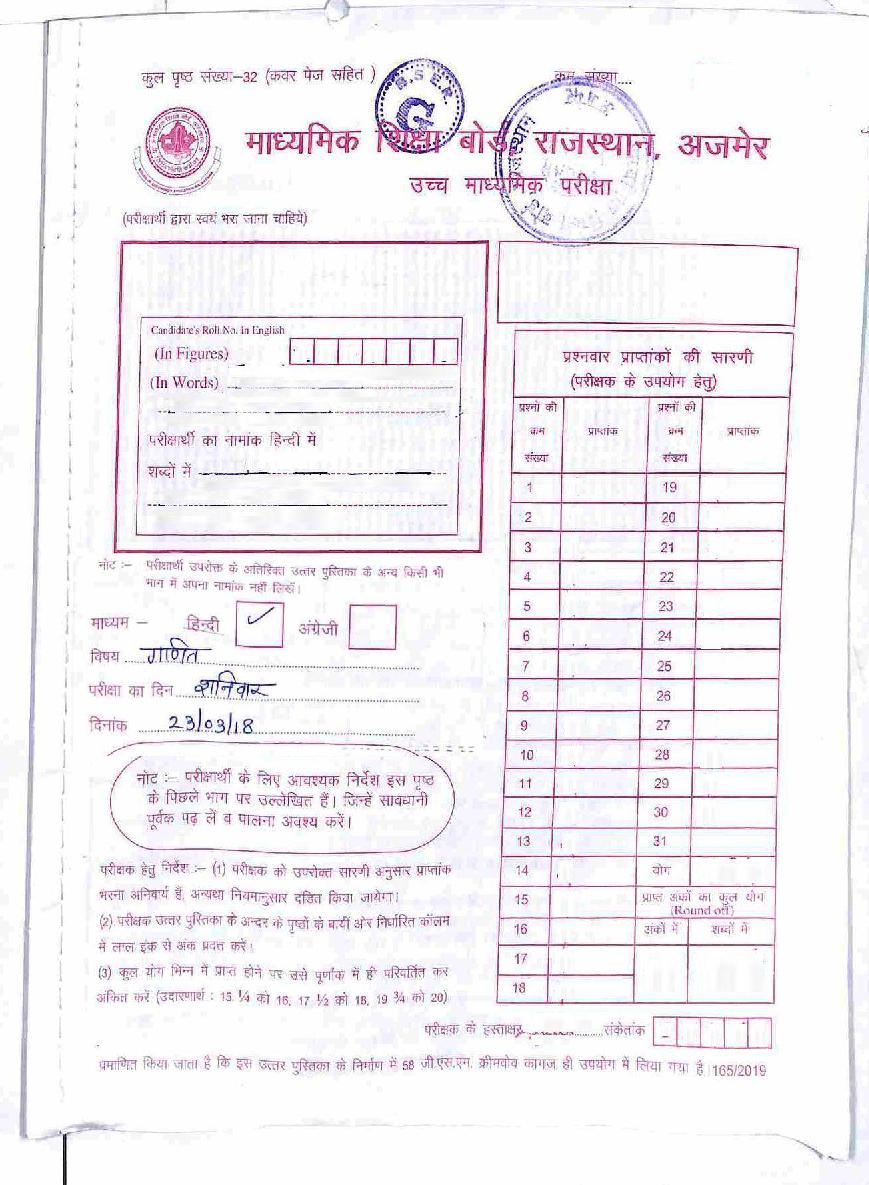 कुल पृष्ठ संख्या-32 (कवर पेज सहित )
क्रम संख्या....
B.S.E.R.
G
माध्यमिक शिक्षा बोर्ड राजस्थान, अजमेर
उच्च माध्यमिक परीक्षा
(परीक्षार्थी द्वारा स्वयं भरा जाना चाहिये)
Candidate's Roll No. in English
(In Figures)
(In Words)
परीक्षार्थी का नामांक हिन्दी में
शब्दों में
नोट :- परीक्षार्थी उपरोक्त के अतिरिक्त उत्तर पुस्तिका के अन्य किसी भी
भाग में अपना नामांक नहीं लिखें।
माध्यम – हिन्दी ✓ अंग्रेजी
विषय गणित
परीक्षा का दिन शनिवार
दिनांक 23/03/18
नोट :- परीक्षार्थी के लिए आवश्यक निर्देश इस पृष्ठ
के पिछले भाग पर उल्लेखित हैं। जिन्हें सावधानी
पूर्वक पढ़ लें व पालना अवश्य करें।
परीक्षक हेतु निर्देश :- (1) परीक्षक को उपरोक्त सारणी अनुसार प्राप्तांक
भरना अनिवार्य है, अन्यथा नियमानुसार दंडित किया जायेगा।
(2) परीक्षक उत्तर पुस्तिका के अन्दर के पृष्ठों के बायीं ओर निर्धारित कॉलम
में लाल इंक से अंक प्रदत्त करें।
(3) कुल योग भिन्न में प्राप्त होने पर उसे पूर्णांक में ही परिवर्तित कर
अंकित करें (उदाहरणार्थ : 15 ¼ को 16, 17 ½ को 18, 19 ¾ को 20)
प्रश्नवार प्राप्तांकों की सारणी
(परीक्षक के उपयोग हेतु)
प्रश्नों की क्रम संख्या प्राप्तांक प्रश्नों की क्रम संख्या प्राप्तांक
1 19
2 20
3 21
4 22
5 23
6 24
7 25
8 26
9 27
10 28
11 29
12 30
13 31
14 योग
15 प्राप्त अंकों का कुल योग (Round off)
16 अंकों में शब्दों में
17
18
परीक्षक के हस्ताक्षर संकेतांक
प्रमाणित किया जाता है कि इस उत्तर पुस्तिका के निर्माण में 58 जी.एस.एम. क्रीमवोव कागज ही उपयोग में लिया गया है।165/2019